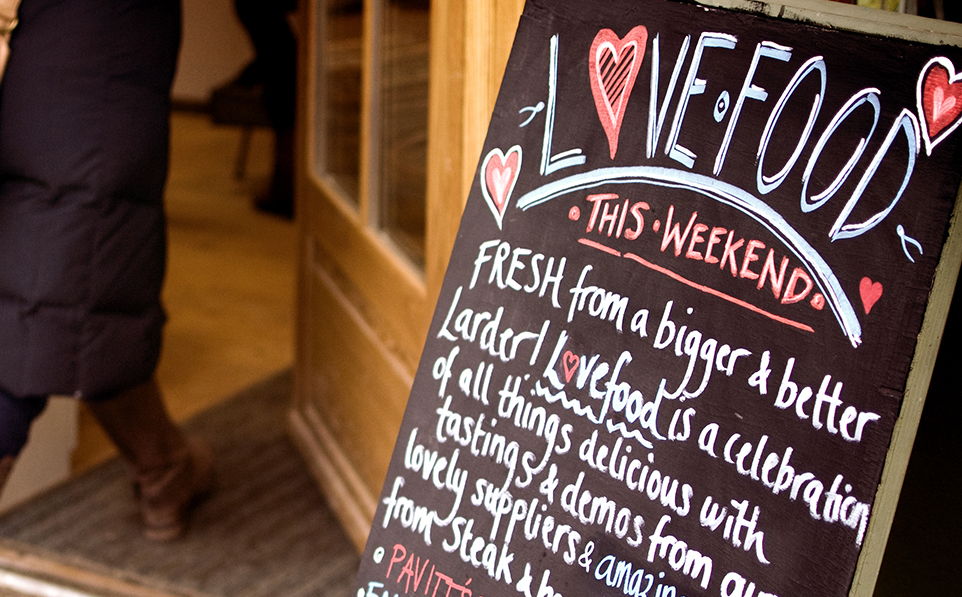 LOVE·FOOD
·THIS·WEEKEND·
FRESH from a bigger & better
Larder! Lovefood is a celebration
of all things delicious with
tastings & demos from our
lovely suppliers & amazin
from Steak &
• PAVITT'S